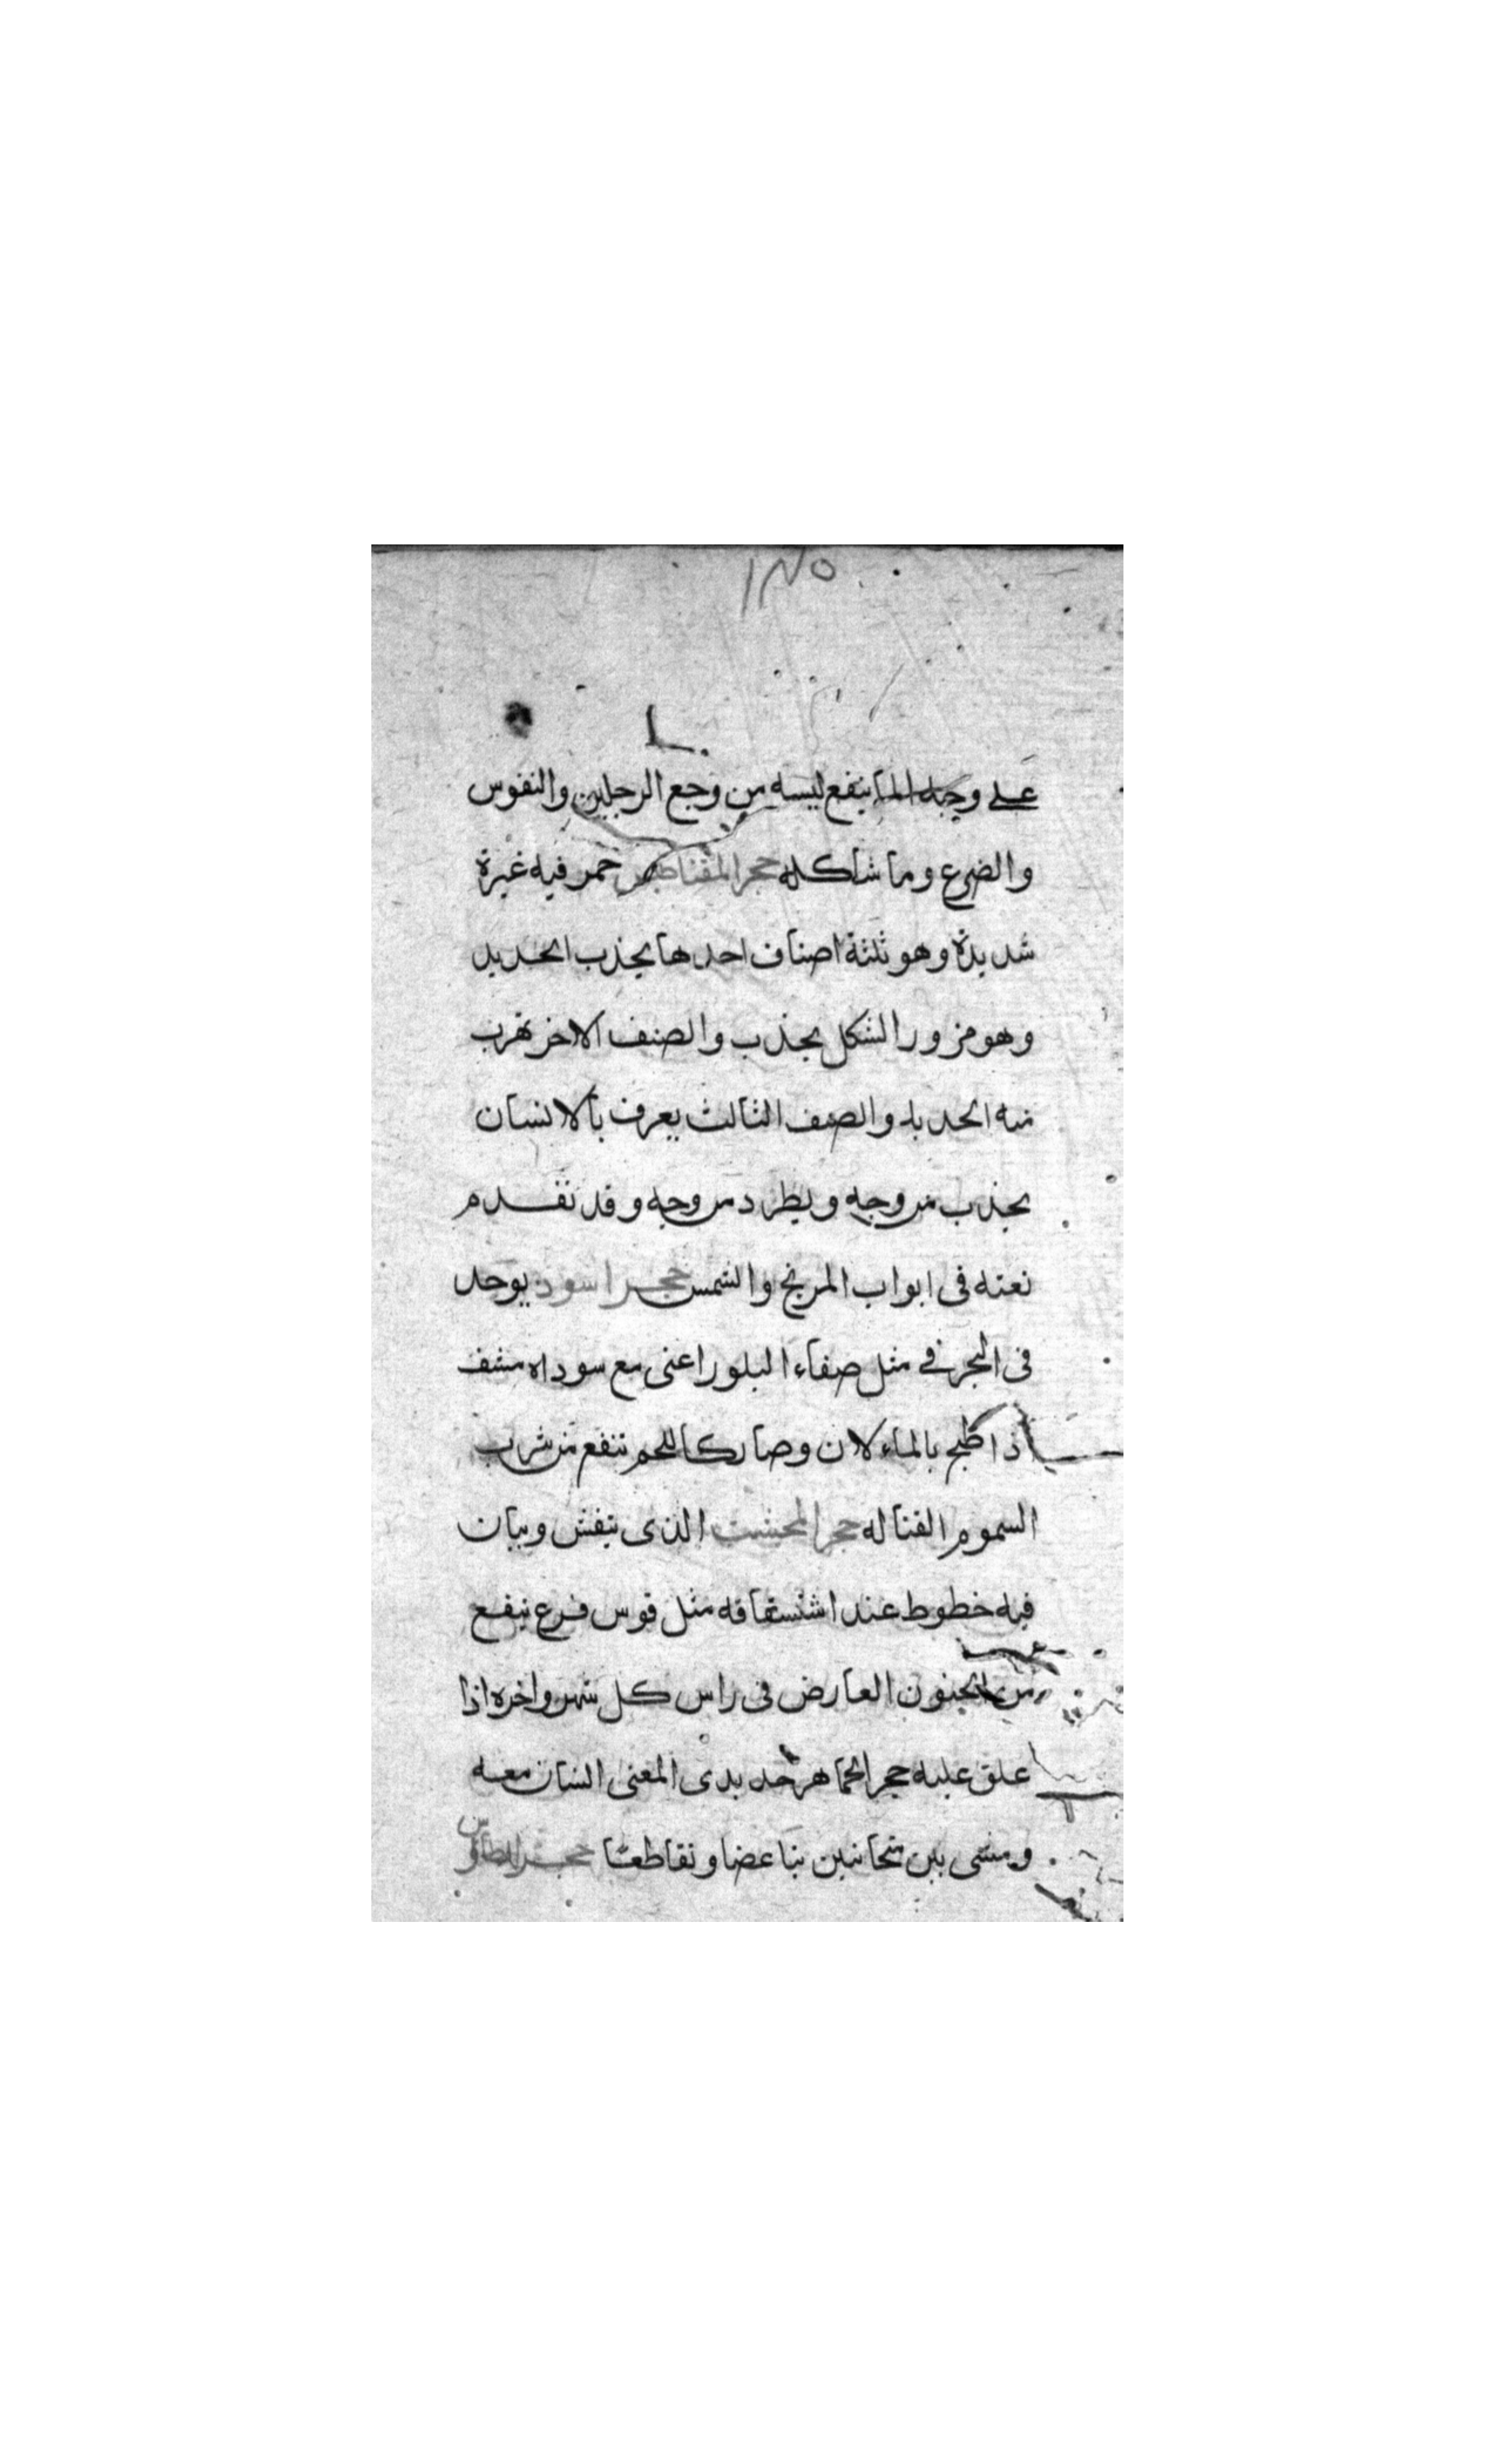 ١٣٥
على وجه الما ينفع لبسه من وجع الرجلين والنقوس
والضرع وما شاكله حجر المقناطيس حمر فيه غبرة
شديدة وهو ثلثة اصناف احدها يجذب الحديد
وهو مزور الشكل يجذب والصنف الاخر تهرب
منه الحديد والصنف الثالث يعرف بالانسان
يجذب من وجه ويطرد من وجه وقد تقدم
نعته فى ابواب المريخ والشمس حجر اسود يوجد
فى البحر فى مثل صفاء البلور اعنى مع سوداه مشف
اذا طبخ بالماء لان وصار كاللحم تنفع من شرب
السموم القتاله حجر الذى ينفش وبيان
فيه خطوط عند اشتقاقه مثل قوس قزع ينفع
من الجنون العارض فى راس كل شهر واخره اذا
علق عليه حجر بدى المعنى انسان معه
ومشى بين متحانبين تباعضا وتقاطعا حجر الطاوس